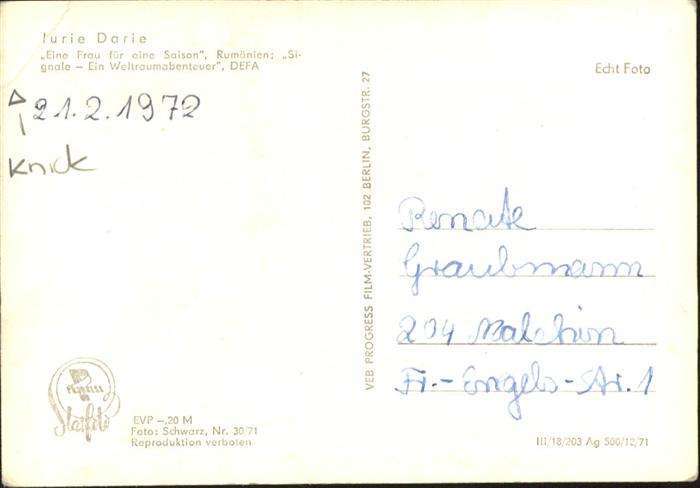 Iurie Darie
„Eine Frau für eine Saison", Rumänien; „Si-
gnale – Ein Weltraumabenteuer", DEFA
Echt Foto
21.2.1972
Knick
VEB PROGRESS FILM-VERTRIEB, 102 BERLIN, BURGSTR. 27
Renate
Graubmann
204 Malchin
Fr.-Engels-Str. 1
Progress
Starfoto
EVP –,20 M
Foto: Schwarz, Nr. 30/71
Reproduktion verboten
III/18/203 Ag 500/12/71